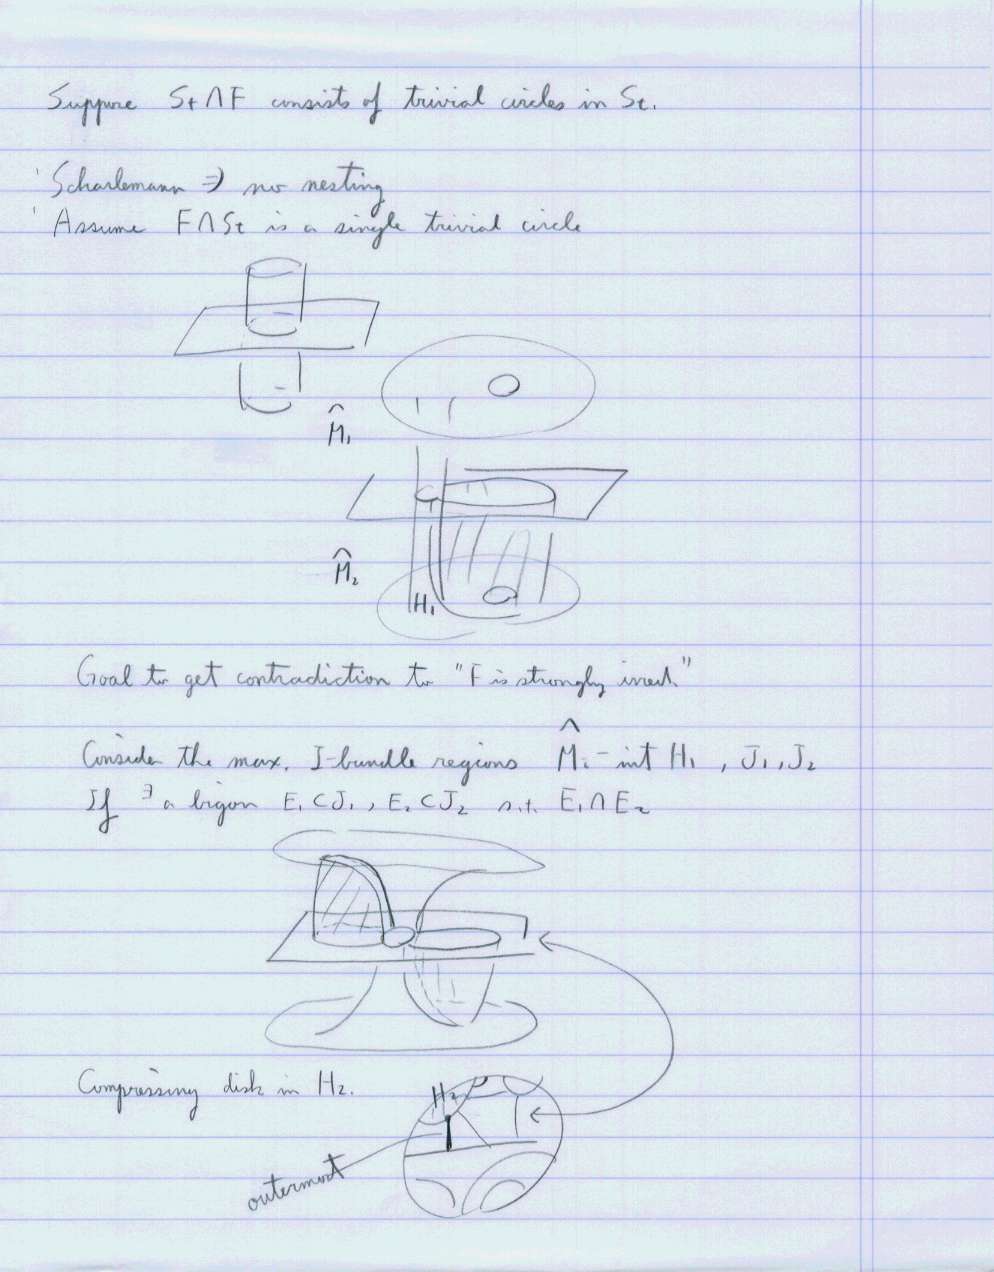 Suppose St∩F consists of trivial circles in St.
Scharlemann ⇒ no nesting
Assume F∩St is a single trivial circle
M̂₁
M̂₂
H₁
Goal to get contradiction to "F is strongly irred."
Consider the max. I-bundle regions M̂ᵢ - int H₁, J₁, J₂
If ∃ a bigon E₁⊂J₁, E₂⊂J₂ s.t. E₁∩E₂
Compressing disk in H₂.
H₂
outermost